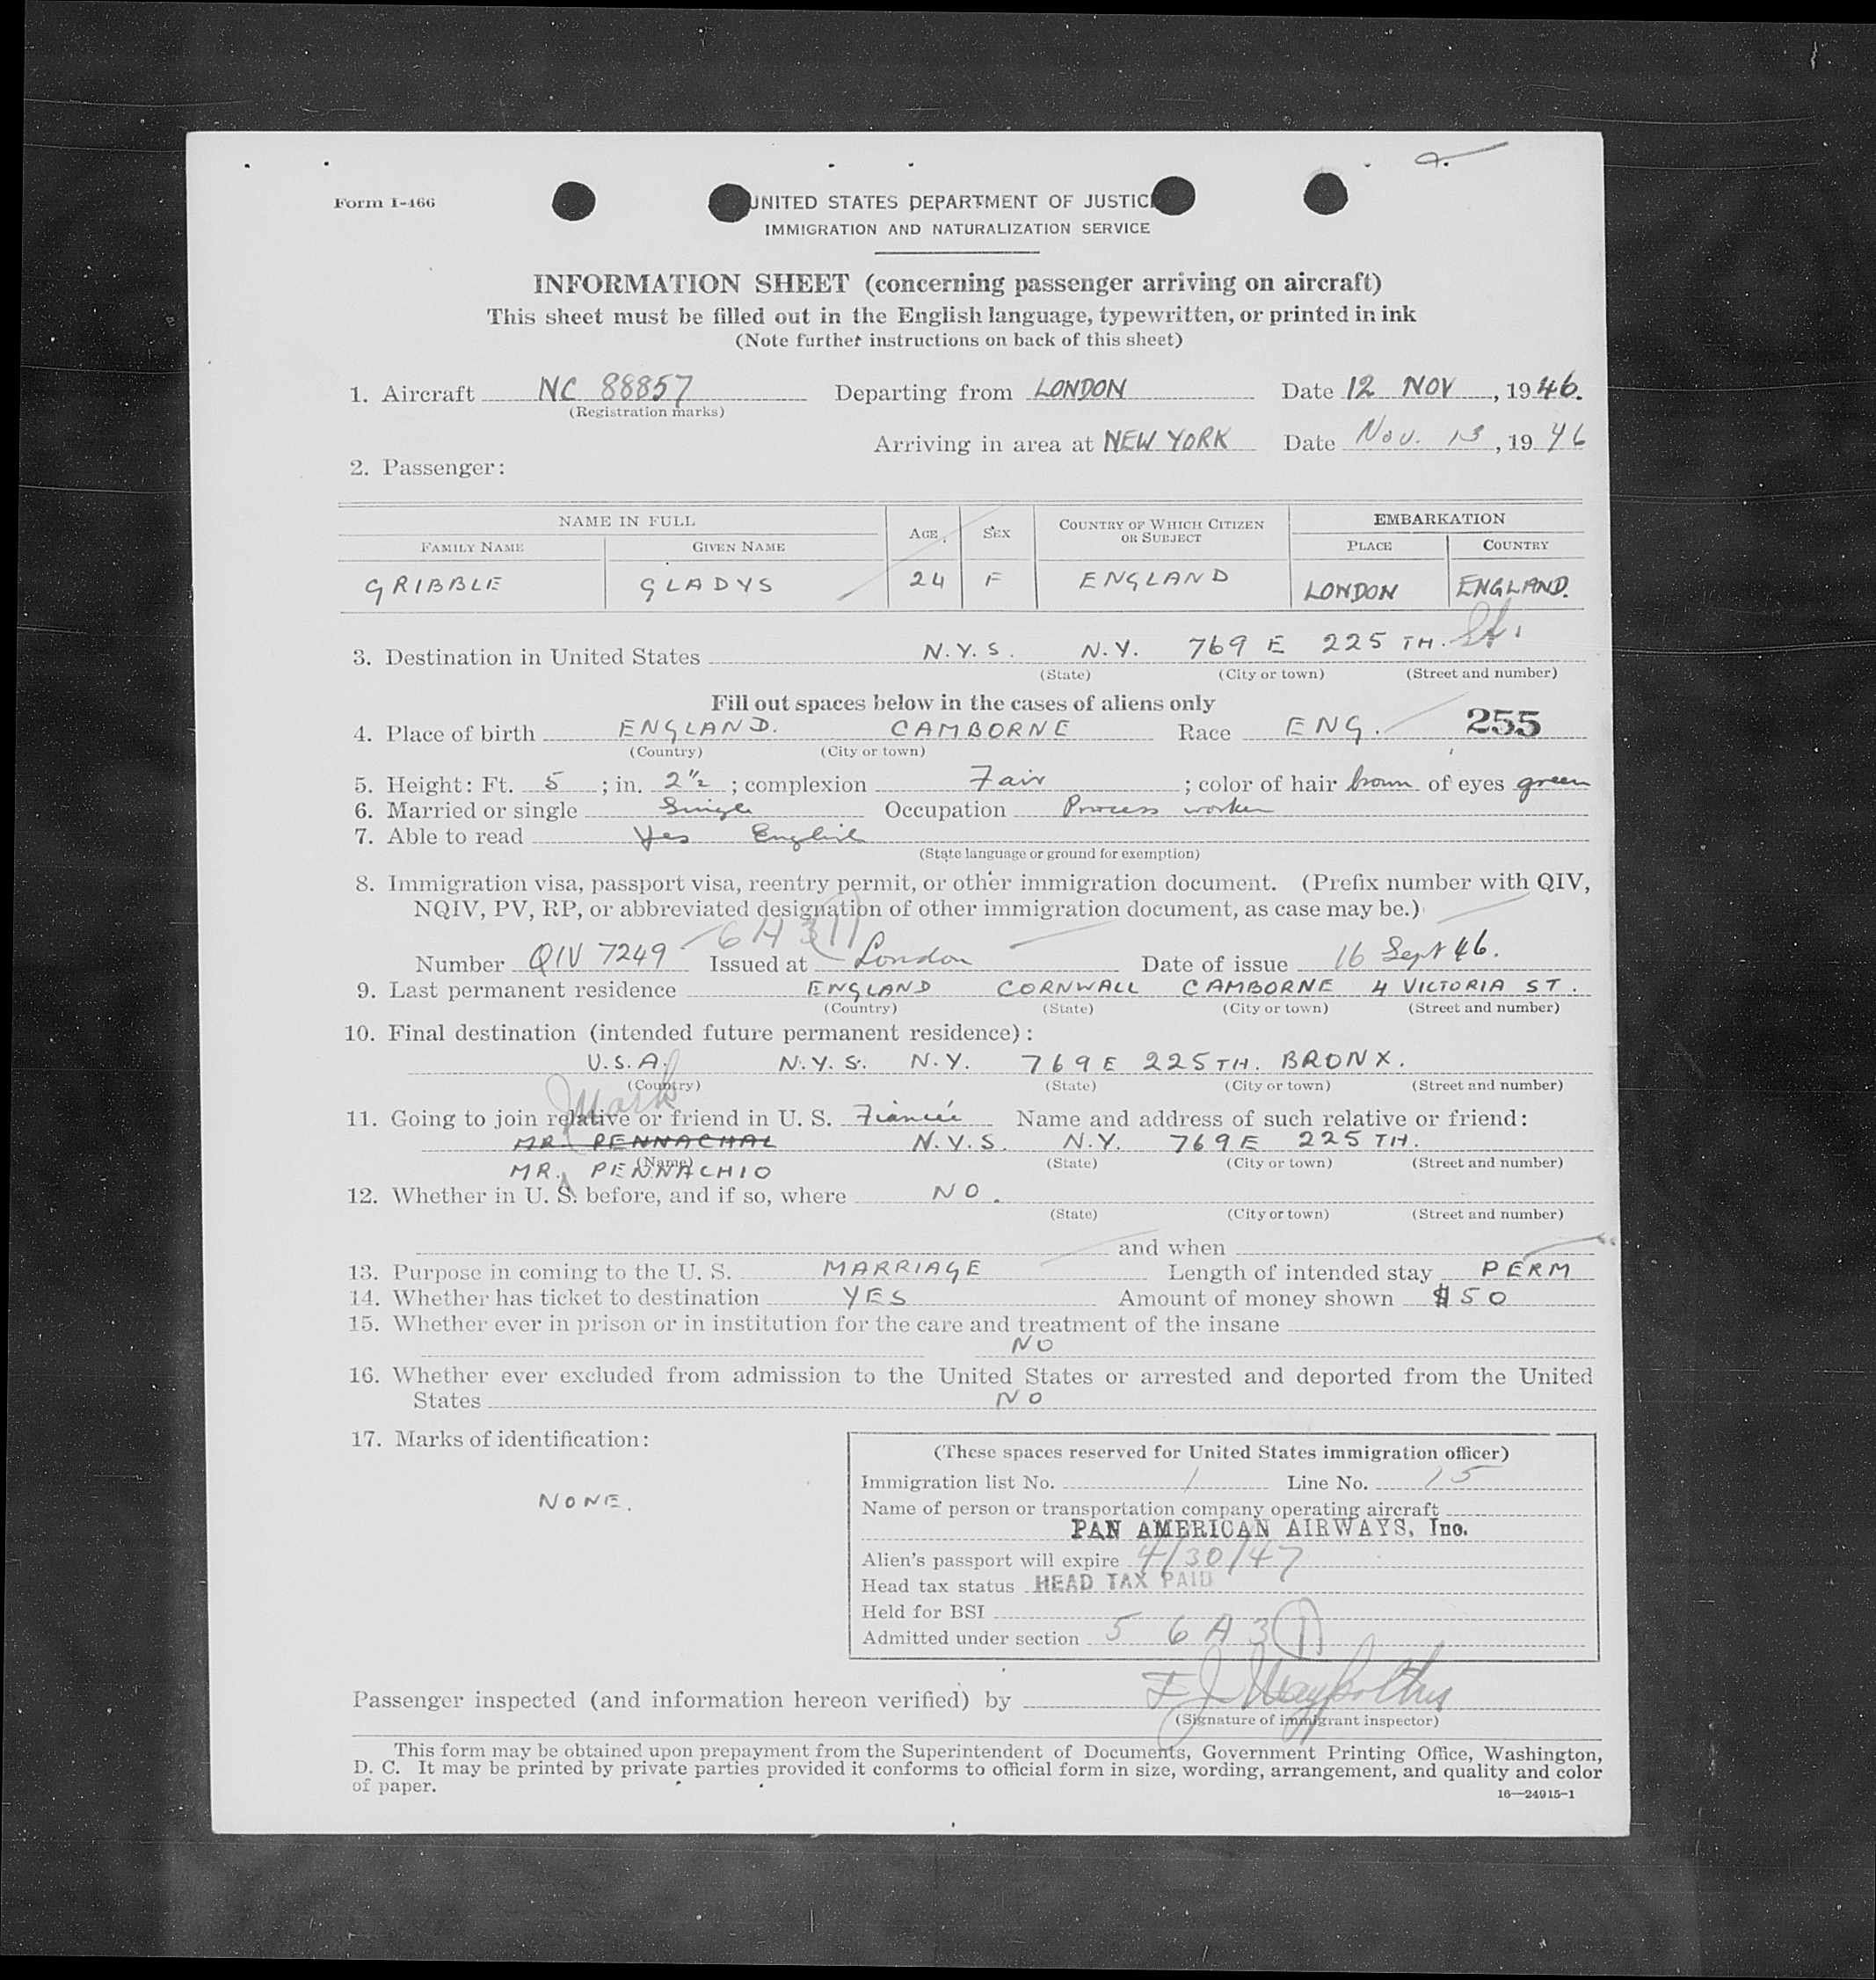 Form I-466
UNITED STATES DEPARTMENT OF JUSTIC
IMMIGRATION AND NATURALIZATION SERVICE
INFORMATION SHEET (concerning passenger arriving on aircraft)
This sheet must be filled out in the English language, typewritten, or printed in ink
(Note further instructions on back of this sheet)
1. Aircraft NC 88857 Departing from LONDON Date 12 NOV, 1946.
(Registration marks)
Arriving in area at NEW YORK Date Nov. 13, 1946
2. Passenger:
NAME IN FULL AGE SEX COUNTRY OF WHICH CITIZEN OR SUBJECT EMBARKATION
FAMILY NAME GIVEN NAME PLACE COUNTRY
GRIBBLE GLADYS 24 F ENGLAND LONDON ENGLAND.
3. Destination in United States N.Y.S. N.Y. 769 E 225 TH. St.
(State) (City or town) (Street and number)
Fill out spaces below in the cases of aliens only
4. Place of birth ENGLAND. CAMBORNE Race ENG. 255
(Country) (City or town)
5. Height: Ft. 5 ; in. 2 1/2 ; complexion Fair ; color of hair brown of eyes green
6. Married or single Single Occupation Process worker
7. Able to read Yes English
(State language or ground for exemption)
8. Immigration visa, passport visa, reentry permit, or other immigration document. (Prefix number with QIV,
NQIV, PV, RP, or abbreviated designation of other immigration document, as case may be.)
6 A 3(1)
Number QIV 7249 Issued at London Date of issue 16 Sept 46.
9. Last permanent residence ENGLAND CORNWALL CAMBORNE 4 VICTORIA ST.
(Country) (State) (City or town) (Street and number)
10. Final destination (intended future permanent residence):
U.S.A. N.Y.S. N.Y. 769 E 225 TH. BRONX.
(Country) (State) (City or town) (Street and number)
11. Going to join relative or friend in U. S. Fiancée Name and address of such relative or friend:
MR. PENNACHAL N.Y.S. N.Y. 769 E 225 TH.
(Name) (State) (City or town) (Street and number)
MR. Mark PENNACHIO
12. Whether in U. S. before, and if so, where NO.
(State) (City or town) (Street and number)
and when
13. Purpose in coming to the U. S. MARRIAGE Length of intended stay PERM
14. Whether has ticket to destination YES Amount of money shown $50
15. Whether ever in prison or in institution for the care and treatment of the insane
NO
16. Whether ever excluded from admission to the United States or arrested and deported from the United
States NO
17. Marks of identification:
NONE.
(These spaces reserved for United States immigration officer)
Immigration list No. 1 Line No. 15
Name of person or transportation company operating aircraft
PAN AMERICAN AIRWAYS, Inc.
Alien's passport will expire 4/30/47
Head tax status HEAD TAX PAID
Held for BSI
Admitted under section 5 6 A 3(1)
Passenger inspected (and information hereon verified) by
(Signature of immigrant inspector)
This form may be obtained upon prepayment from the Superintendent of Documents, Government Printing Office, Washington,
D. C. It may be printed by private parties provided it conforms to official form in size, wording, arrangement, and quality and color
of paper.
16—24915-1